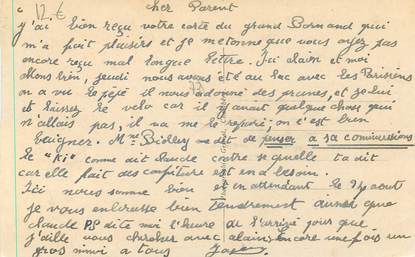 12.€
cher Parent
j'ai bien reçu votre carte du grand Bornand qui
m'a fait plaisirs et je m'etonne que vous ayez pas
encore reçu mal longue lettre. Ici alain et moi
allons bien, jeudi nous avons été au lac avec les Parisiens
on a vu le pépé il nous a donné des prunes, et je lui
et laissez le velo car il y avait quelque chose qui
n'allais pas, il va me le reparé, on c'est bien
baigner. Mme dit de penser a sa commissions
le "Ki" comme dit claude contre sequelle ta dit
car elle fait des confiture est en a besoin.
Ici nous somme bien et en attendant le 24 aout
je vous embrasse bien tendrement ainsi que
claude PS dite moi l'heure du l'arrivé pour que
j'aille vous chercher avec alain encore une fois un
gros mimi a tous